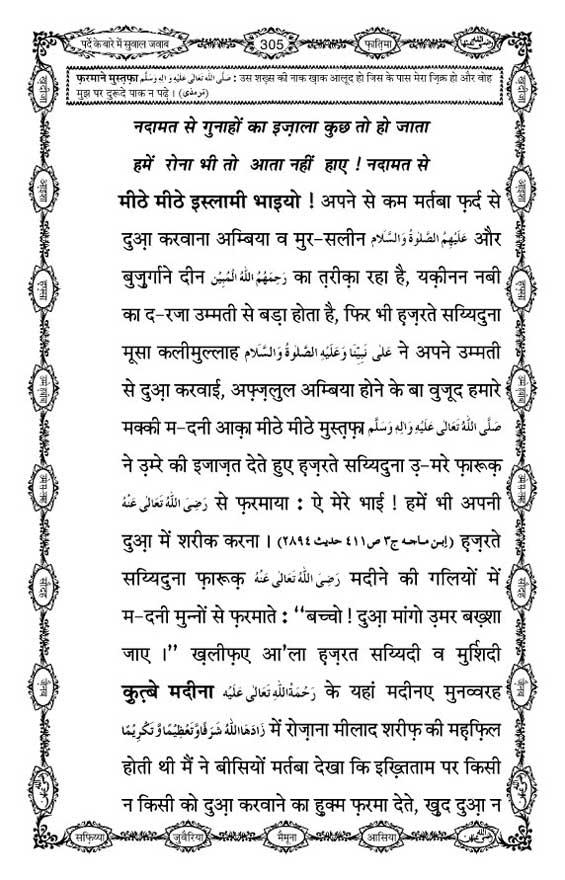 पर्दे के बारे में सुवाल जवाब 305 फ़ातिमा رضی الله عنها
फ़रमाने मुस्तफ़ा صَلَّى اللهُ تَعَالٰى عَلَيْهِ وَاٰلِهٖ وَسَلَّم : उस शख़्स की नाक ख़ाक आलूद हो जिस के पास मेरा ज़िक्र हो और वोह
मुझ पर दुरूदे पाक न पढ़े । (ترمذی)
नदामत से गुनाहों का इज़ाला कुछ तो हो जाता
हमें रोना भी तो आता नहीं हाए ! नदामत से
मीठे मीठे इस्लामी भाइयो ! अपने से कम मर्तबा फ़र्द से
दुआ़ करवाना अम्बिया व मुर-सलीन عَلَيْهِمُ الصَّلٰوةُ وَالسَّلَام और
बुजुर्गाने दीन رَحِمَهُمُ اللهُ الْمُبِيْن का त़रीक़ा रहा है, यक़ीनन नबी
का द-रजा उम्मती से बड़ा होता है, फिर भी ह़ज़रते सय्यिदुना
मूसा कलीमुल्लाह عَلٰى نَبِيِّنَا وَعَلَيْهِ الصَّلٰوةُ وَالسَّلَام ने अपने उम्मती
से दुआ़ करवाई, अफ़्ज़लुल अम्बिया होने के बा वुजूद हमारे
मक्की म-दनी आक़ा मीठे मीठे मुस्त़फ़ा صَلَّى اللهُ تَعَالٰى عَلَيْهِ وَاٰلِهٖ وَسَلَّم
ने उ़म्रे की इजाज़त देते हुए ह़ज़रते सय्यिदुना उ़-मरे फ़ारूक़
رَضِىَ اللهُ تَعَالٰى عَنْهُ से फ़रमाया : ऐ मेरे भाई ! हमें भी अपनी
दुआ़ में शरीक करना । (ابن ماجه ج٣ ص٤١١ حديث ٢٨٩٤) ह़ज़रते
सय्यिदुना फ़ारूक़ رَضِىَ اللهُ تَعَالٰى عَنْهُ मदीने की गलियों में
म-दनी मुन्नों से फ़रमाते : “बच्चो ! दुआ़ मांगो उ़मर बख़्शा
जाए ।” ख़लीफ़ए आ'ला ह़ज़रत सय्यिदी व मुर्शिदी
क़ुत़्बे मदीना رَحْمَةُ اللهِ تَعَالٰى عَلَيْه के यहां मदीनए मुनव्वरह
زَادَهَا اللهُ شَرَفًا وَّتَعْظِيْمًا وَّتَكْرِيْمًا में रोज़ाना मीलाद शरीफ़ की मह़फ़िल
होती थी मैं ने बीसियों मर्तबा देखा कि इख़्तिताम पर किसी
न किसी को दुआ़ करवाने का हुक्म फ़रमा देते, ख़ुद दुआ़ न
सफ़िय्या जुवैरिया मैमूना आसिया